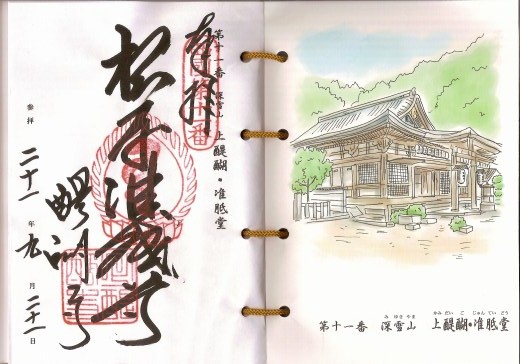 奉拝
西国第十一番
第十一番 深雪山 上醍醐・准胝堂
醍醐寺
参拝 二十一年 九月 二十一日
みゆきやま かみだいご じゅんていどう
第十一番 深雪山 上醍醐・准胝堂